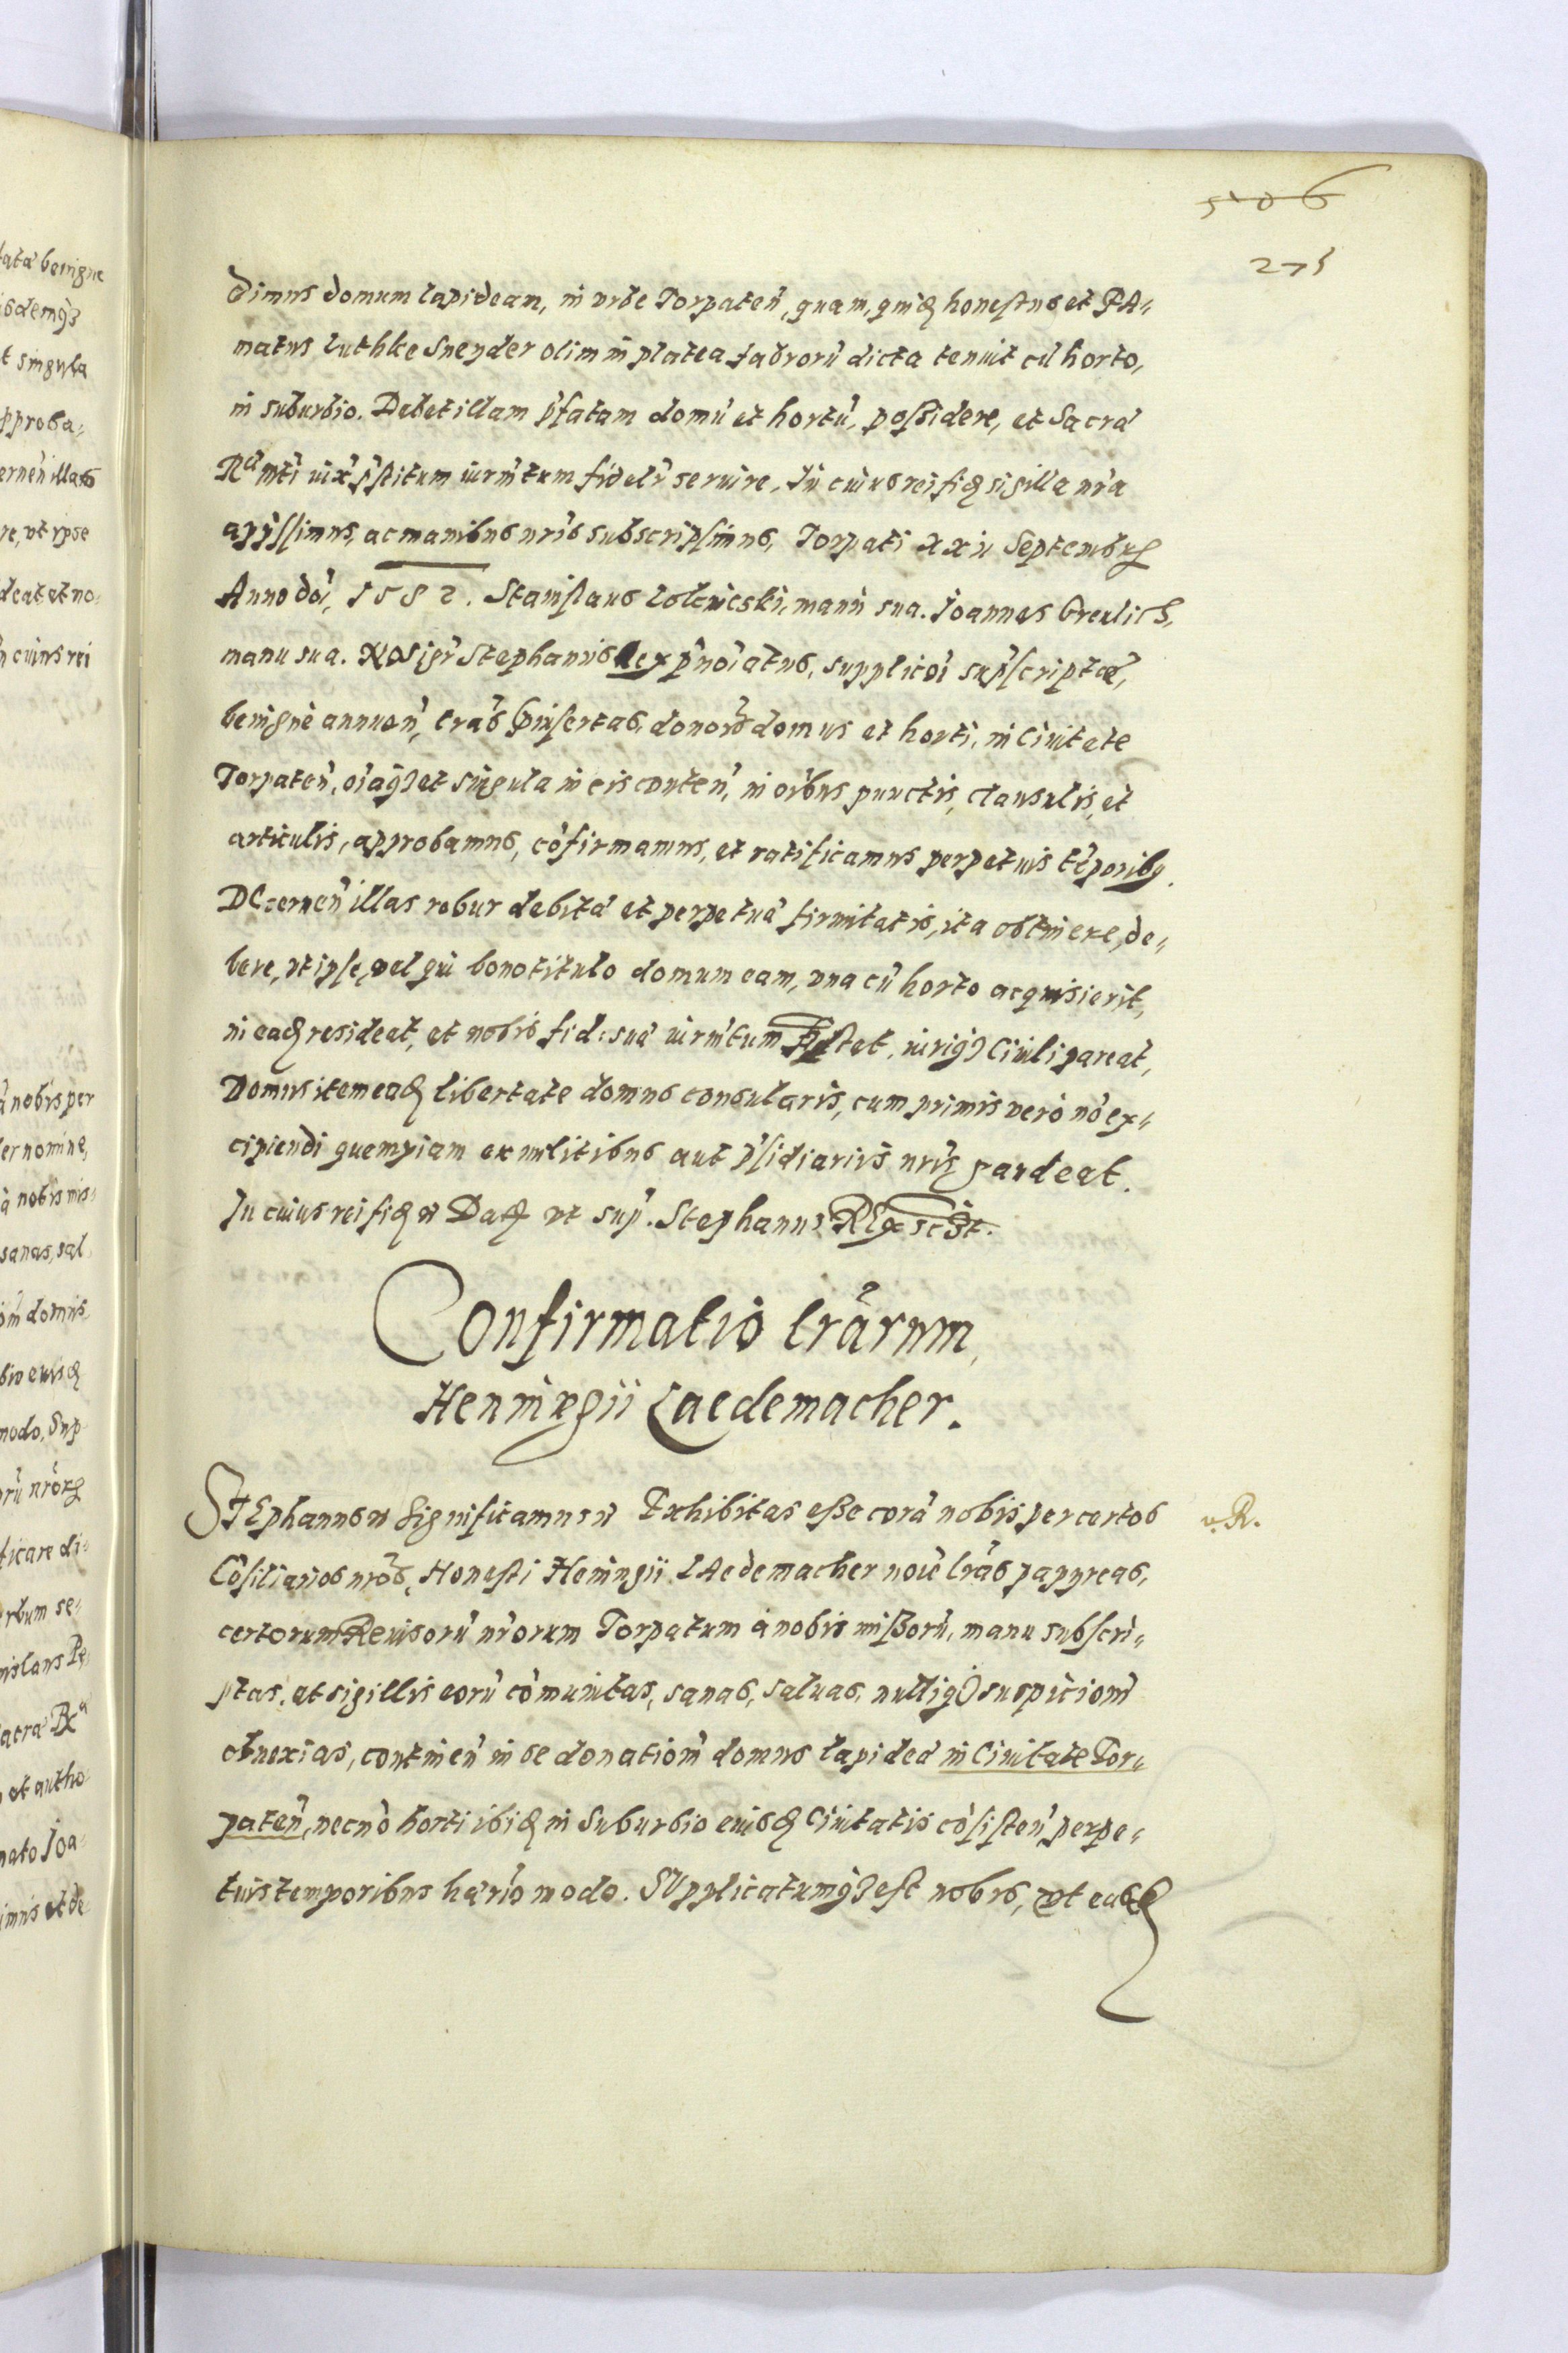 506
271
dimus domum lapideam, in vrbe Torpaten̄, quam, quid honestus et FA-
matus Luthke Sneyder olim in platea fabrorū dicta tenuit cū horto,
in suburbio. Debet illam p̄fatam domū et hortū, possidere, et Sacrā
Rᵃ mti iux̄ p̄stitum iurm̄tum fidelr̄ seruire. In cuius rei fid sigilla nr̄a
app̄ssimus, ac manibus nr̄is subscripsimus, Torpati xxii Septembr
Anno do͞i, 1582. Stanislaus manu sua. Joannes Greulich,
manu sua. NOS igr̄ Stephanus Rex p̄no͞iatus, supplico͞i sup̄scriptæ,
benignè annuen̄, lr̄as p̄insertas, donor̄ domus et horti, in Ciuitate
Torpaten̄, o͞iaq3 et singula in eis conten̄, in o͞ibus punctis, clausulis, et
articulis, approbamus, cōfirmamus, et ratificamus perpetuis tēporibq.
DEcernen̄ illas robur debitā et perpetuā firmitatis, ita obtinere, de-
bere, vt ipse, vel qui bono titulo domum eam, vna cū horto acquisierit,
in ead resideat, et nobis fid: suā iurm̄tum p̄stet, iuriq3 Ciuili pareat,
Domus item ead libertate domus consularis, cum primis verò nō ex-
cipiendi quempiam ex militibus aut p̄sidiariis nr̄is gaudeat.
In cuius rei fid Dat vt sup̄. Stephanus REx sc̄st.
Confirmatio lr̄arum,
Henningii Laedemacher.
STEphanus Significamus Exhibitas esse corā nobis per certos
v. R.
Cōsiliarios nr̄os, Honesti Heningii LAedemacher no͞ie lr̄as papyreas,
certorum Reuisorū nr̄orum Torpatum à nobis missorū, manu subscri-
ptas, et sigillis eorū cōmunitas, sanas, saluas, nulliq3 suspicioni
obnoxias, continen̄ in se donation̄ domus lapideā in Ciuitate Tor-
paten̄, necnō horti ibid in Suburbio eiusd Ciuitatis cōsisten̄ perpe-
tuis temporibus hær̄io modo. SVpplicatumq3 est nobis, vt easd